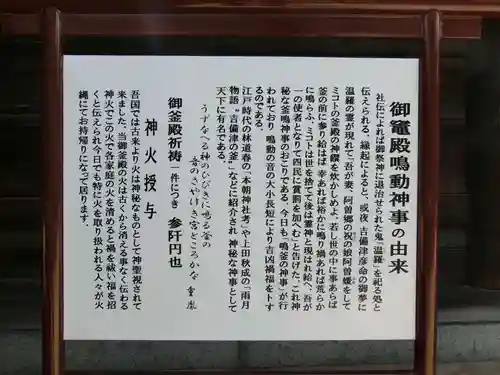 御竈殿鳴動神事の由来
社伝によれば御祭神に退治せられた鬼「温羅」を祀る処と
伝えられる、縁起によると、或夜、吉備津彦命の御夢に
温羅の霊が現れて「吾が妻、阿曽郷の祝の娘阿曽媛をして
ミコトの釜殿の神饌を炊かしめよ、若し世の中に事あらば
釜の前に参り給はば幸あれば裕かに鳴り禍あれば荒らか
に鳴らふ、ミコトは世を捨てて後は霊神と現はれ給へ、吾が
一の使者となりて四民に賞罰を加へむ」と告げた、これ神
秘な釜鳴神事のおこりである。今日も「鳴釜の神事」が行
われており、鳴動の音の大小長短により吉凶禍福をトす
るのである。
江戸時代の林道春の「本朝神社考」や上田秋成の「雨月
物語」“吉備津の釜”などに紹介され、神秘な神事として
天下に有名である。
うずなへる神のひびきに鳴る釜の
音のさやけき宮どころかな 重胤
御釜殿祈祷 一件につき 参阡円也
神火授与
吾国では古来より火は神秘なものとして神聖視されて
来ました、当御釜殿の火は古くから消える事なく伝わる
神火でこの火で各家庭の火を清めると禍を祓い福を招
くと伝えられ今日でも特に火を取り扱われる人々が火
縄にてお持帰りになって居ります